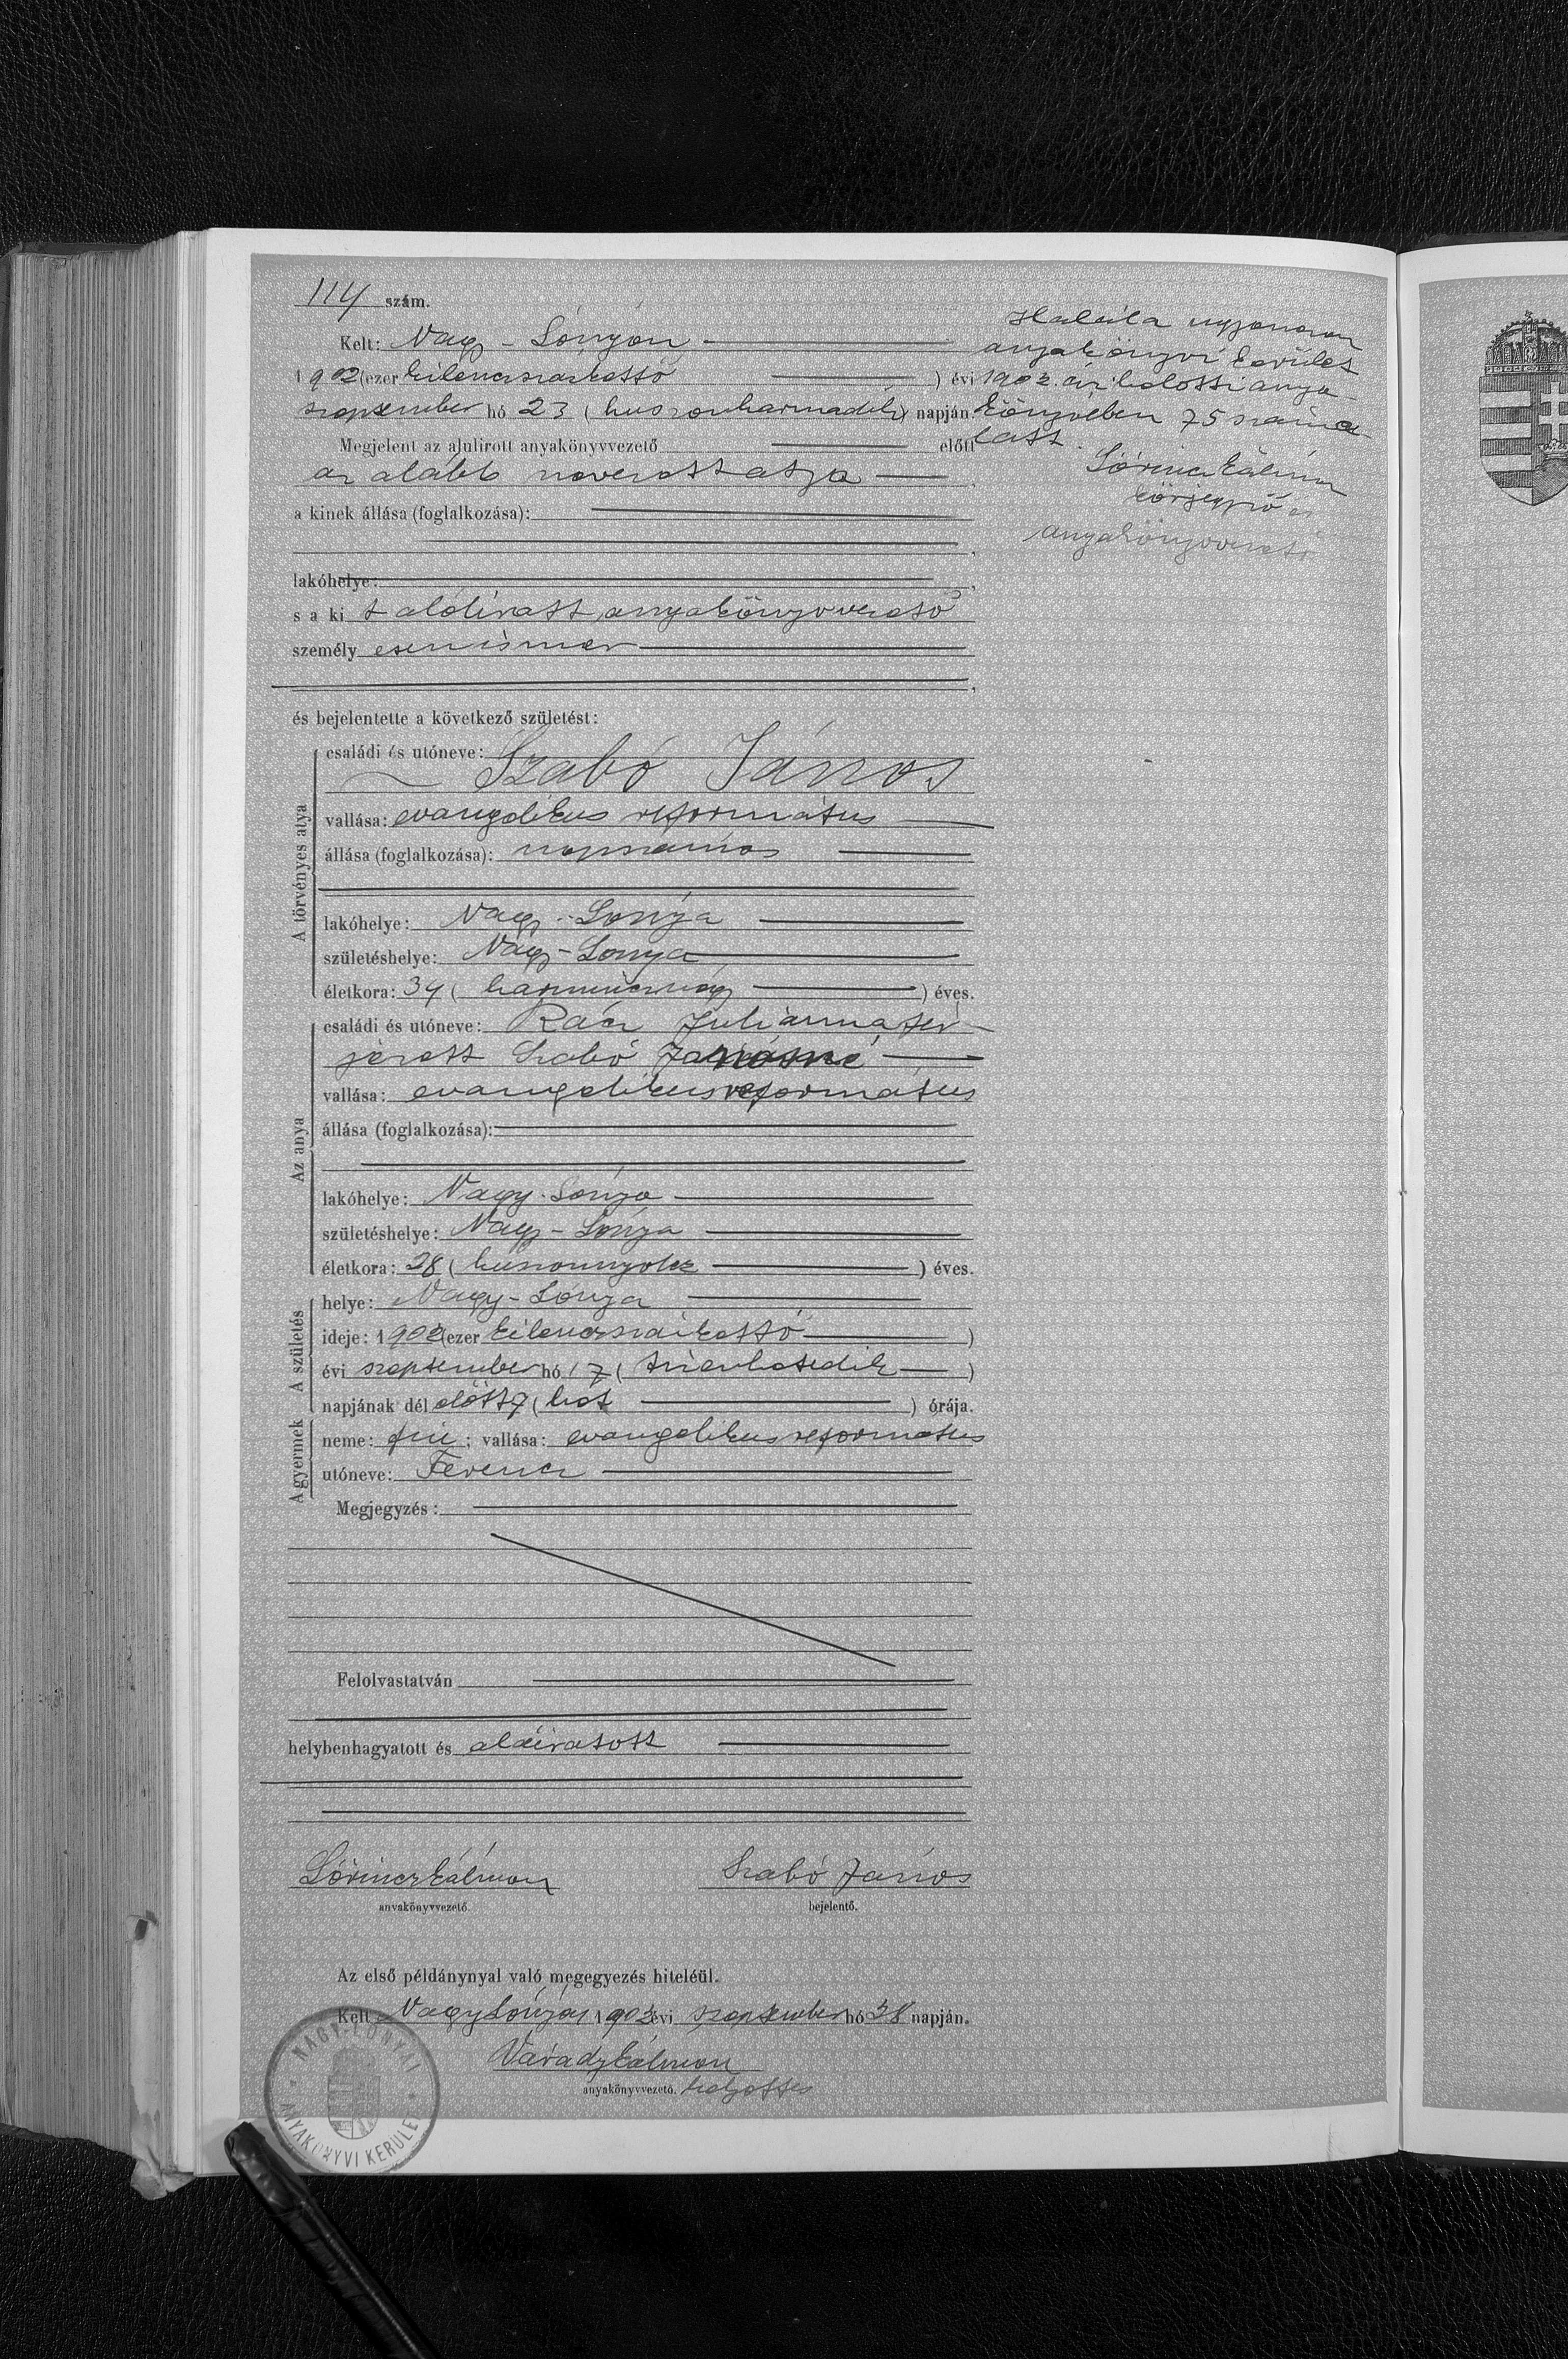 114 szám.
Kelt: Nagy-Lónyán
1902 (ezer kilenczszázkettő) évi
szeptember hó 23 (huszonharmadik) napján.
Megjelent az alulirott anyakönyvvezető előtt
az alább nevezett atya,
a kinek állása (foglalkozása):
lakóhelye:
s a kit alólirott anyakönyvvezető
személyesen ismer
és bejelentette a következő születést:
A törvényes atya
családi és utóneve:
Szabó János
vallása: evangelikus református
állása (foglalkozása): napszámos
lakóhelye: Nagy-Lónya
születéshelye: Nagy-Lonya
életkora: 34 (harmincznégy) éves.
Az anya
családi és utóneve: Rácz Juliánna fér-
jezett Szabó Jánosné
vallása: evangelikus református
állása (foglalkozása):
lakóhelye: Nagy-Lónya
születéshelye: Nagy-Lónya
életkora: 28 (huszonnyolcz) éves.
A születés
helye: Nagy-Lónya
ideje: 1902 (ezer kilenczszázkettő)
évi szeptember hó 17 (tizenhetedik)
napjának dél előtt 7 (hét) órája.
A gyermek
neme: fiú; vallása: evangelikus református
utóneve: Ferencz
Megjegyzés:
Felolvastatván
helybenhagyatott és aláiratott
Lőrincz Kálmán
anyakönyvvezető.
Szabó János
bejelentő.
Az első példánynyal való megegyezés hiteléül.
Kelt Nagy Lónyán 1902 évi szeptember hó 28 napján.
Várady Kálmán
anyakönyvvezető. helyettes
NAGY-LÓNYAI
ANYAKÖNYVI KERÜLET
Halála ugyanezen
anyakönyvi kerület
1902. évi halotti anya-
könyvében 75 szám a-
latt.
Lőrincz Kálmán
körjegyző és
anyakönyvvezető